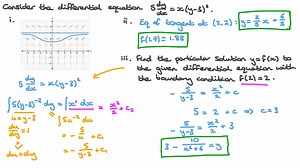 Consider the differential equation 5 dy/dx = x(y-3)².
i.
ii. Eq of tangent at (2,2): y = 2/5 x + 6/5
f(1.7) = 1.88
iii. Find the particular solution y = f(x) to the given differential equation with the boundary condition f(2) = 2.
5 dy/dx = x(y-3)²
∫ 5(y-3)⁻² dy = ∫ x dx = x²/2 + C₂
u = y-3
du/dy = 1
du = dy
∫ 5u⁻² du
= -5/u + C₁
= -5/(y-3) + C₁
-5/(y-3) = x²/2 + C
5 = 2 + c ⇒ c = 3
-5/(y-3) = x²/2 + 3
3 - 10/(x²+6) = y